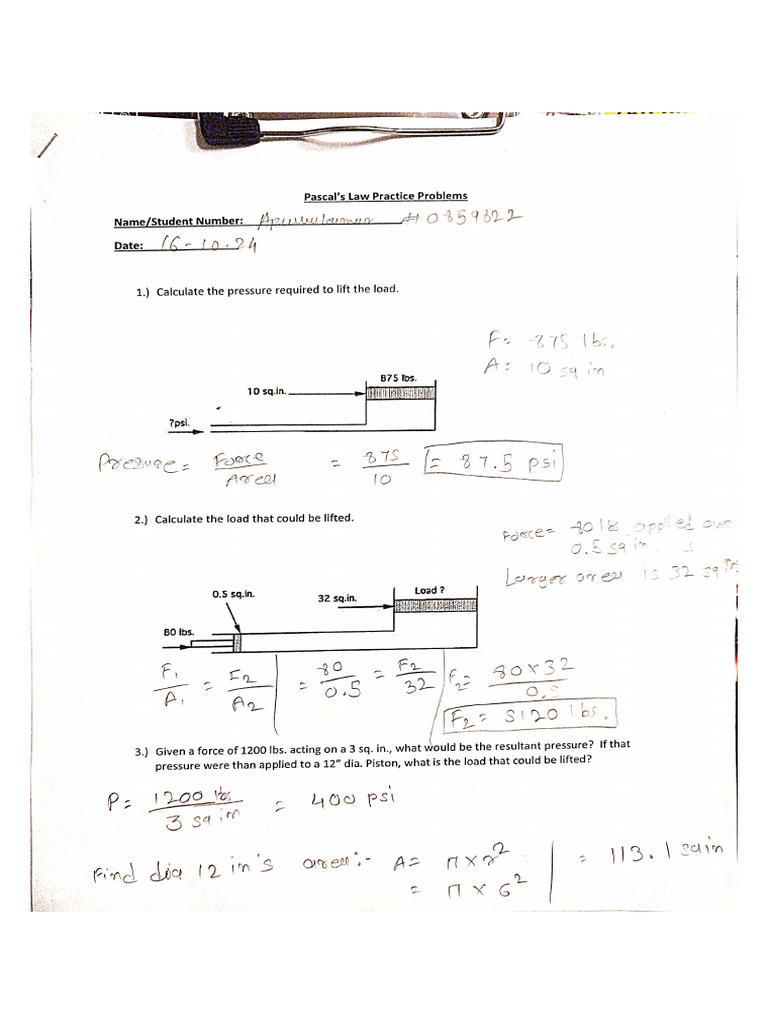 Pascal's Law Practice Problems
Name/Student Number: #0859822
Date: 16-10.24
1.) Calculate the pressure required to lift the load.
F= 875 lbs.
A= 10 sq in
875 lbs.
10 sq.in.
?psi.
Pressure = Force / Area = 875 / 10 = 87.5 psi
2.) Calculate the load that could be lifted.
Force= 80 lbs applied over
0.5 sq in
Larger area is 32 sq in
0.5 sq.in.
32 sq.in.
Load ?
80 lbs.
F1 / A1 = F2 / A2 | = 80 / 0.5 = F2 / 32 | F2 = 80x32 / 0.5
F2 = 5120 lbs.
3.) Given a force of 1200 lbs. acting on a 3 sq. in., what would be the resultant pressure? If that
pressure were than applied to a 12" dia. Piston, what is the load that could be lifted?
P= 1200 lbs / 3 sq in = 400 psi
Find dia 12 in's area:- A= π x r² | = 113.1 sq in
= π x 6²